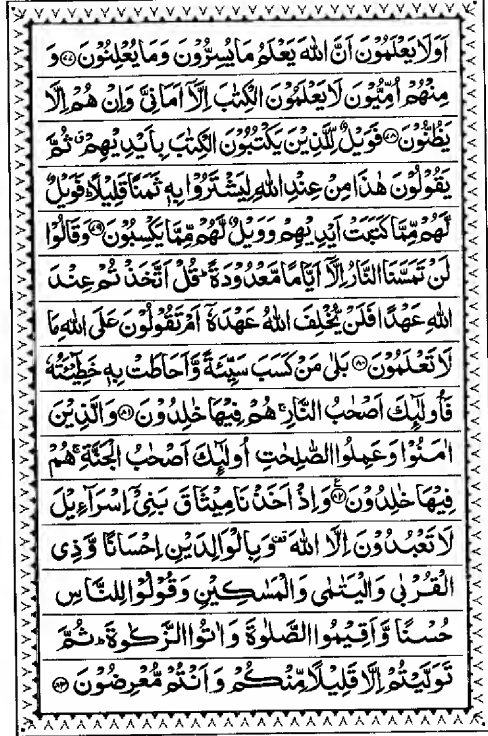 اَوَلَا يَعْلَمُوْنَ اَنَّ اللّٰهَ يَعْلَمُ مَا يُسِرُّوْنَ وَمَا يُعْلِنُوْنَ ﴿۷۷﴾ وَ
مِنْهُمْ اُمِّيُّوْنَ لَا يَعْلَمُوْنَ الْكِتٰبَ اِلَّاۤ اَمَانِيَّ وَاِنْ هُمْ اِلَّا
يَظُنُّوْنَ ﴿۷۸﴾ فَوَيْلٌ لِّلَّذِيْنَ يَكْتُبُوْنَ الْكِتٰبَ بِاَيْدِيْهِمْ ۗ ثُمَّ
يَقُوْلُوْنَ هٰذَا مِنْ عِنْدِ اللّٰهِ لِيَشْتَرُوْا بِهٖ ثَمَنًا قَلِيْلًا ؕ فَوَيْلٌ
لَّهُمْ مِّمَّا كَتَبَتْ اَيْدِيْهِمْ وَوَيْلٌ لَّهُمْ مِّمَّا يَكْسِبُوْنَ ﴿۷۹﴾ وَقَالُوْا
لَنْ تَمَسَّنَا النَّارُ اِلَّاۤ اَيَّامًا مَّعْدُوْدَةً ؕ قُلْ اَتَّخَذْتُمْ عِنْدَ
اللّٰهِ عَهْدًا فَلَنْ يُّخْلِفَ اللّٰهُ عَهْدَهٗۤ اَمْ تَقُوْلُوْنَ عَلَى اللّٰهِ مَا
لَا تَعْلَمُوْنَ ﴿۸۰﴾ بَلٰى مَنْ كَسَبَ سَيِّئَةً وَّاَحَاطَتْ بِهٖ خَطِيْٓئَتُهٗ
فَاُولٰٓئِكَ اَصْحٰبُ النَّارِ ۚ هُمْ فِيْهَا خٰلِدُوْنَ ﴿۸۱﴾ وَالَّذِيْنَ
اٰمَنُوْا وَعَمِلُوا الصّٰلِحٰتِ اُولٰٓئِكَ اَصْحٰبُ الْجَنَّةِ ۚ هُمْ
فِيْهَا خٰلِدُوْنَ ﴿۸۲﴾ ع وَاِذْ اَخَذْنَا مِيْثَاقَ بَنِيْۤ اِسْرَآءِيْلَ
لَا تَعْبُدُوْنَ اِلَّا اللّٰهَ ۟ وَبِالْوَالِدَيْنِ اِحْسَانًا وَّذِى
الْقُرْبٰى وَالْيَتٰمٰى وَالْمَسٰكِيْنِ وَقُوْلُوْا لِلنَّاسِ
حُسْنًا وَّاَقِيْمُوا الصَّلٰوةَ وَاٰتُوا الزَّكٰوةَ ؕ ثُمَّ
تَوَلَّيْتُمْ اِلَّا قَلِيْلًا مِّنْكُمْ وَاَنْتُمْ مُّعْرِضُوْنَ ﴿۸۳﴾